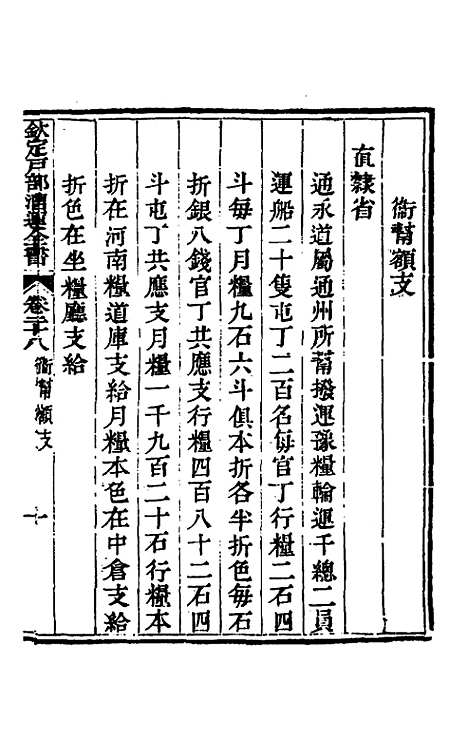 衞幇額支
直隸省
通永道屬通州所幇撥運豫糧輪運千總二員
運船二十隻屯丁二百名每官丁行糧二石四
斗每丁月糧九石六斗俱本折各半折色每石
折銀八錢官丁共應支行糧四百八十二石四
斗屯丁共應支月糧一千九百二十石行糧本
折在河南糧道庫支給月糧本色在中倉支給
折色在坐糧廳支給
欽定戸部漕運全書 卷二十八 衞幇額支 十